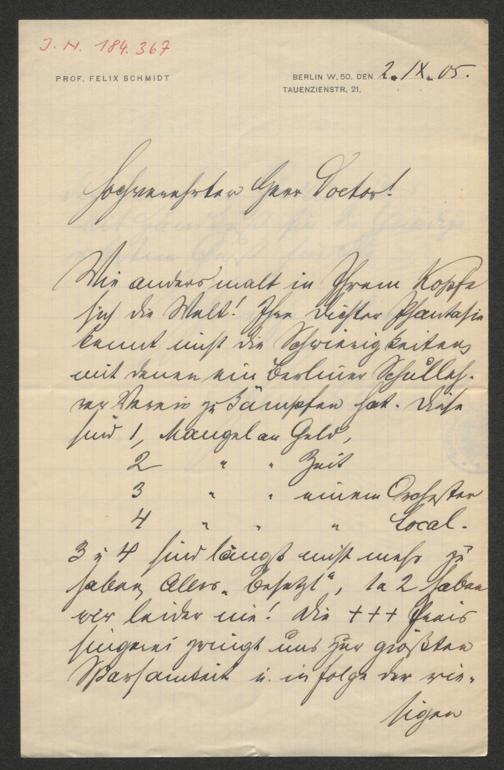 J. N. 184.367
PROF. FELIX SCHMIDT
BERLIN W. 50. DEN 2. IX. 05.
TAUENZIENSTR. 21.
Hochverehrter Herr Doctor!
Wie anders malt in Ihrem Kopfe
sich die Welt! Ihre Dichter Phantasie
kennt nicht die Schwierigkeiten
mit denen ein Berliner Schulleh-
rer Verein zu kämpfen hat. Diese
sind 1, Mangel an Geld,
2 " " Zeit
3 " " einem Orchester
4 " " " Local.
3 u 4 sind längst nicht mehr zu
haben, Alles „besetzt", 1 u 2 haben
wir leider nie! Die +++ Preis
singerei zwingt uns zur größten
Sparsamkeit u. in folge der rie-
sigen